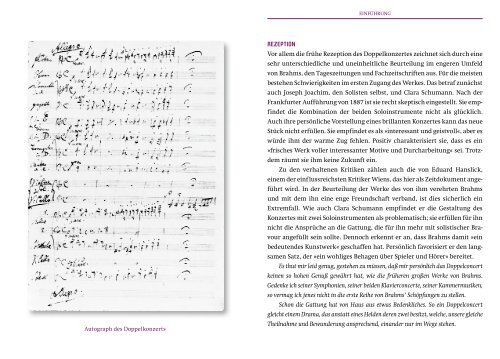 Allegro
Autograph des Doppelkonzerts
EINFÜHRUNG
REZEPTION
Vor allem die frühe Rezeption des Doppelkonzertes zeichnet sich durch eine
sehr unterschiedliche und uneinheitliche Beurteilung im engeren Umfeld
von Brahms, den Tageszeitungen und Fachzeitschriften aus. Für die meisten
bestehen Schwierigkeiten im ersten Zugang des Werkes. Das betraf zunächst
auch Joseph Joachim, den Solisten selbst, und Clara Schumann. Nach der
Frankfurter Aufführung von 1887 ist sie recht skeptisch eingestellt. Sie emp-
findet die Kombination der beiden Soloinstrumente nicht als glücklich.
Auch ihre persönliche Vorstellung eines brillanten Konzertes kann das neue
Stück nicht erfüllen. Sie empfindet es als «interessant und geistvoll», aber es
würde ihm der warme Zug fehlen. Positiv charakterisiert sie, dass es ein
«frisches Werk voller interessanter Motive und Durcharbeitung» sei. Trotz-
dem räumt sie ihm keine Zukunft ein.
Zu den verhaltenen Kritiken zählen auch die von Eduard Hanslick,
einem der einflussreichsten Kritiker Wiens, das hier als Zeitdokument ange-
führt wird. In der Beurteilung der Werke des von ihm verehrten Brahms
und mit dem ihn eine enge Freundschaft verband, ist dies sicherlich ein
Extremfall. Wie auch Clara Schumann empfindet er die Gestaltung des
Konzertes mit zwei Soloinstrumenten als problematisch; sie erfüllen für ihn
nicht die Ansprüche an die Gattung, die für ihn mehr mit solistischer Bra-
vour angefüllt sein sollte. Dennoch erkennt er an, dass Brahms damit «ein
bedeutendes Kunstwerk» geschaffen hat. Persönlich favorisiert er den lang-
samen Satz, der «ein wohliges Behagen über Spieler und Hörer» bereitet.
Es that mir leid genug, gestehen zu müssen, daß mir persönlich das Doppelconcert
keinen so hohen Genuß gewährt hat, wie die früheren großen Werke von Brahms.
Gedenke ich seiner Symphonien, seiner beiden Klavierconcerte, seiner Kammermusiken,
so vermag ich jenes nicht in die erste Reihe von Brahms' Schöpfungen zu stellen.
Schon die Gattung hat von Haus aus etwas Bedenkliches. So ein Doppelconcert
gleicht einem Drama, das anstatt eines Helden deren zwei besitzt, welche, unsere gleiche
Theilnahme und Bewunderung ansprechend, einander nur im Wege stehen.